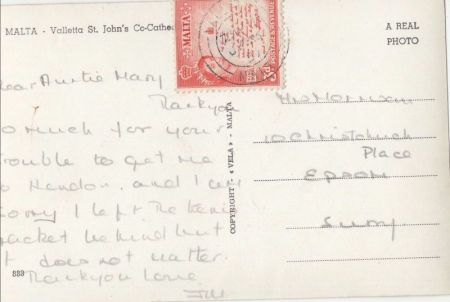 MALTA - Valletta St. John's Co-Cathe
A REAL
PHOTO
MALTA
POSTAGE & REVENUE
Dear Auntie Mary
Thankyou
so much for your
trouble to get me
to Hendon, and I am
sorry I left the tennis
racket behind but
it does not matter.
Thankyou Love
Jill
COPYRIGHT - «VELA» - MALTA
10 Christchurch
Place
EPSOM
Surrey
883